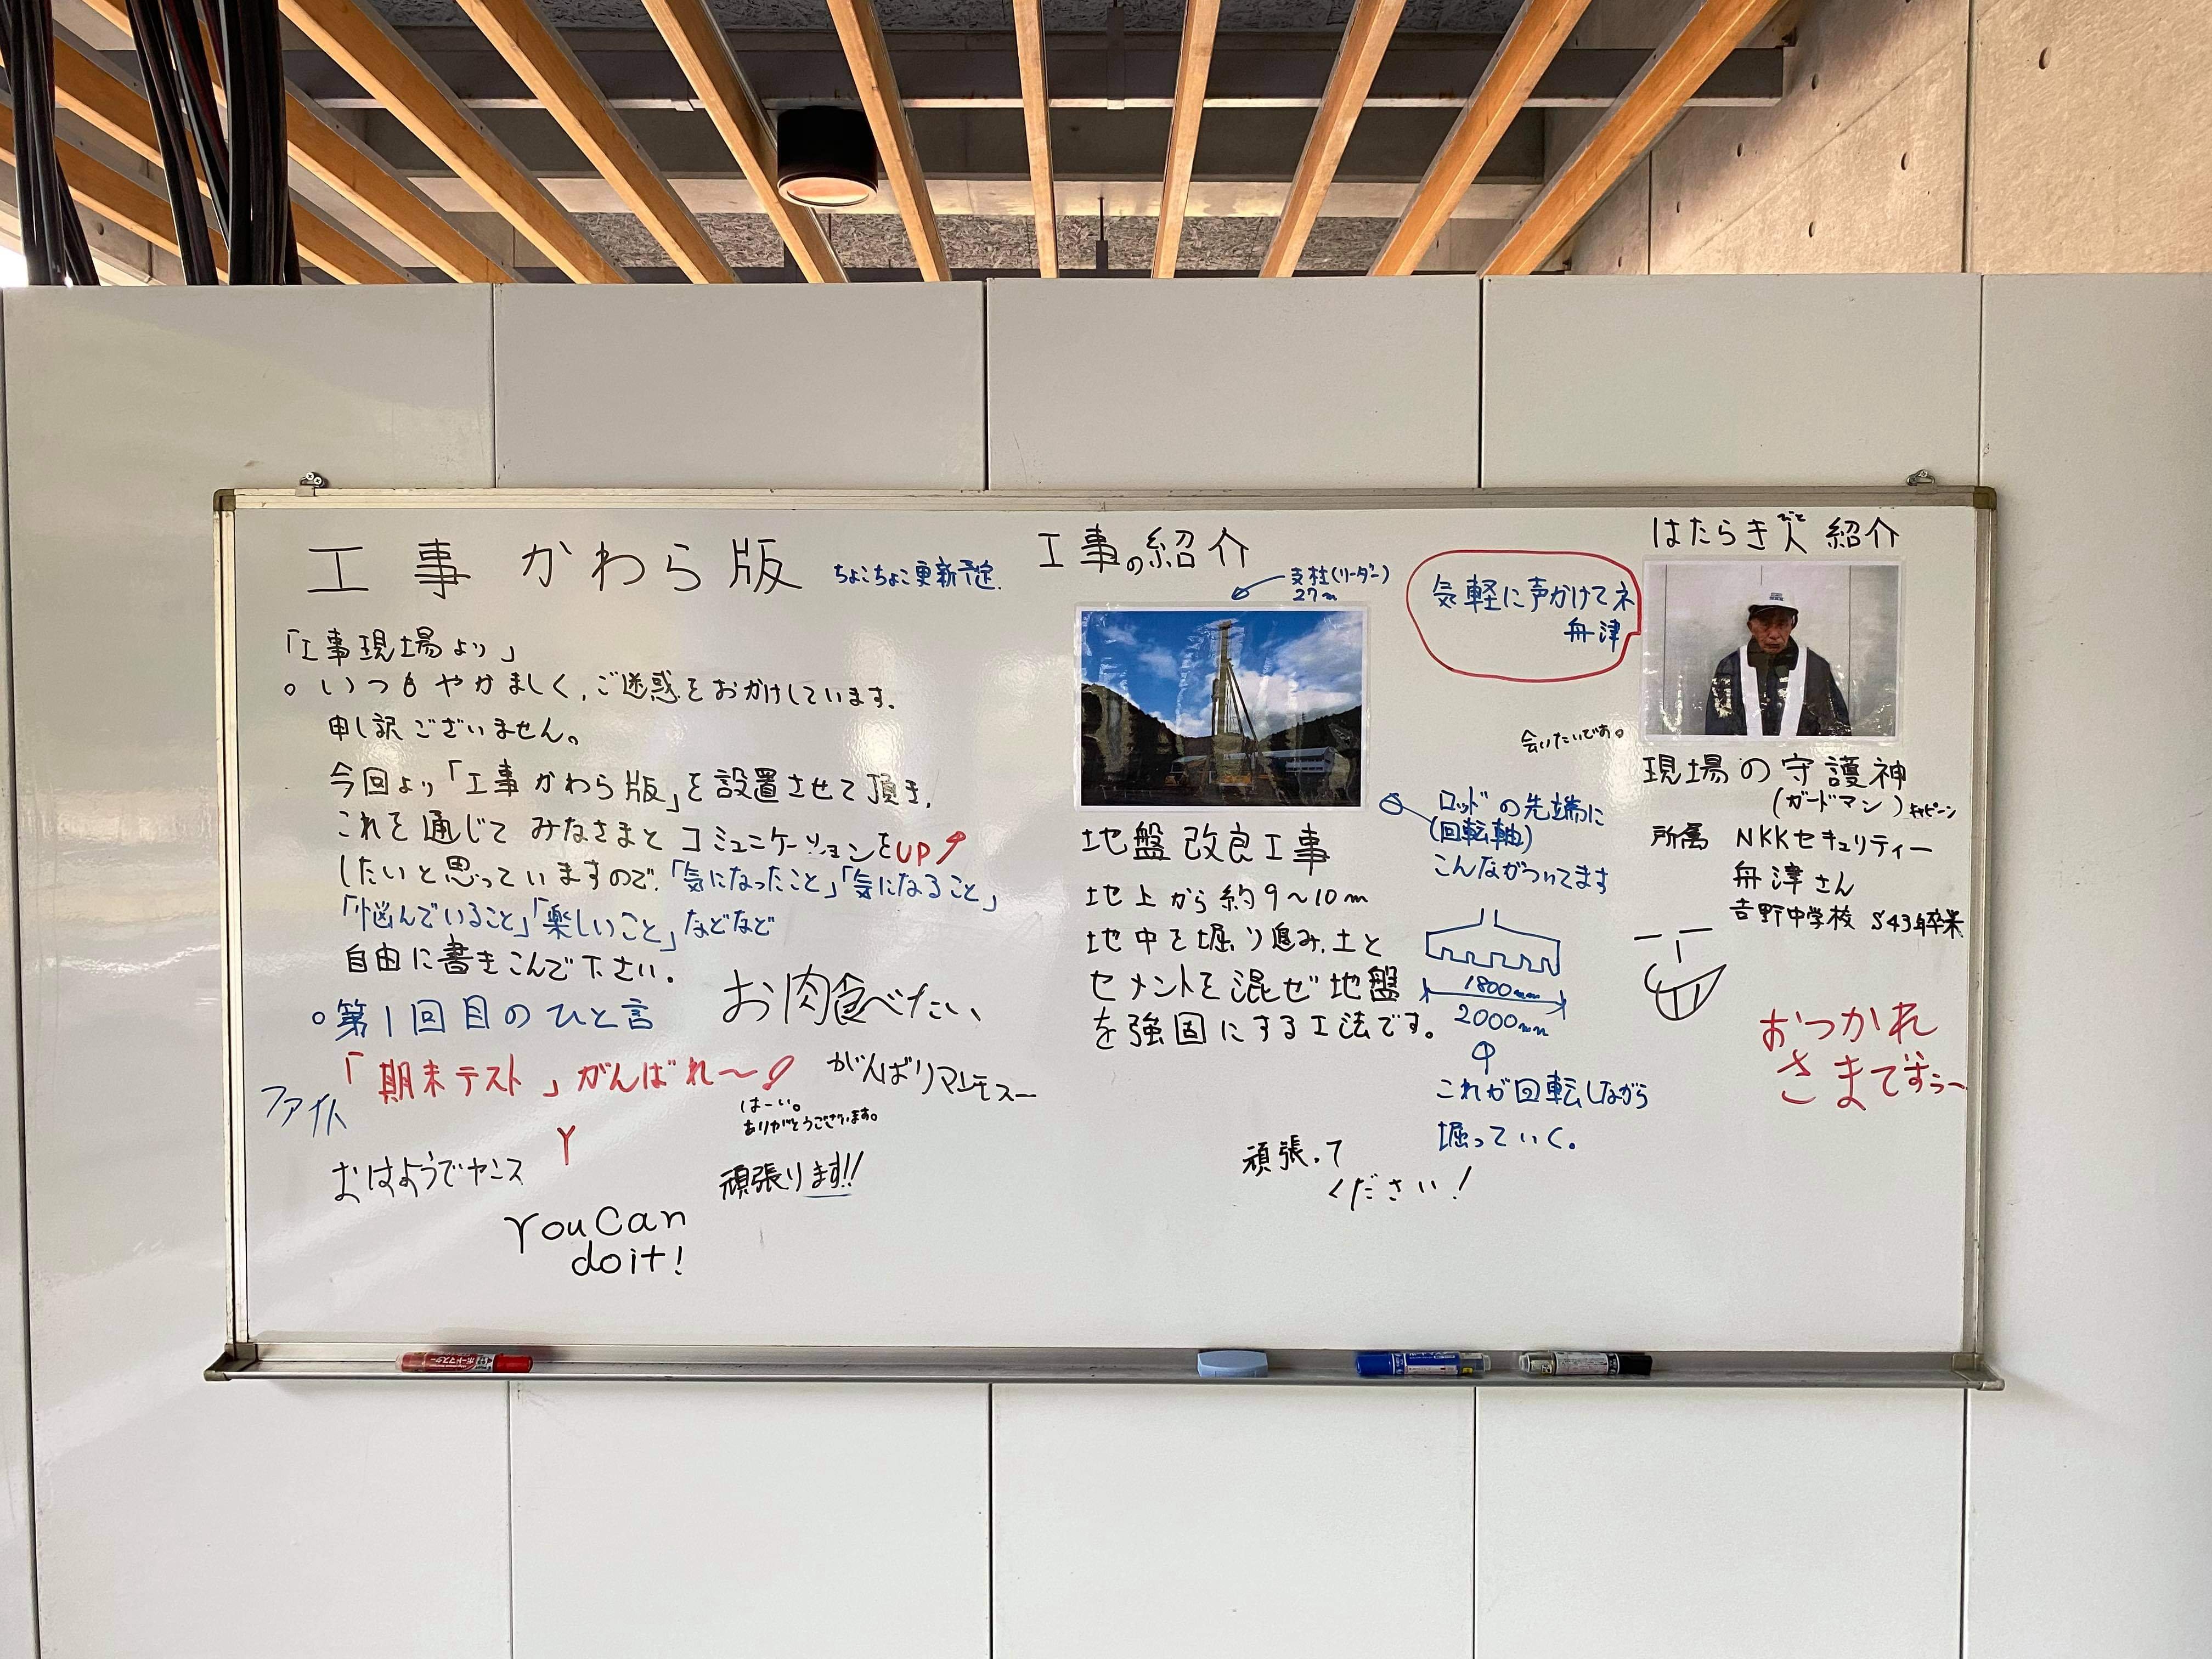 工事かわら版 ちょこちょこ更新予定.
「工事現場より」
○ いつもやかましく、ご迷惑をおかけしています。
申し訳ございません。
今回より「工事かわら版」を設置させて頂き、
これを通じてみなさまとコミュニケーションをUP
したいと思っていますので、「気になったこと」「気になること」
「悩んでいること」「楽しいこと」などなど
自由に書きこんで下さい。
お肉食べたい
○ 第1回目のひと言
「期末テスト」がんばれ〜!
がんばりマレモスー
ファイト
はーい。
ありがとうございます。
Y
おはようでヤンス
頑張ります!!
You Can
do it!
工事の紹介
支柱(リーダー)
27m
地盤改良工事
地上から約9〜10m
地中を堀り進み、土と
セメントを混ぜ地盤
を強固にする工法です。
ロッドの先端に
(回転軸)
こんながついてます
1800mm
2000mm
これが回転しながら
堀っていく。
頑張って
ください!
はたらき人紹介
びと
気軽に声かけてネ
舟津
会いたいです。
現場の守護神
(ガードマン)
所属 NKKセキュリティー
舟津さん
吉野中学校 S43年卒業
おつかれ
さまですぅー